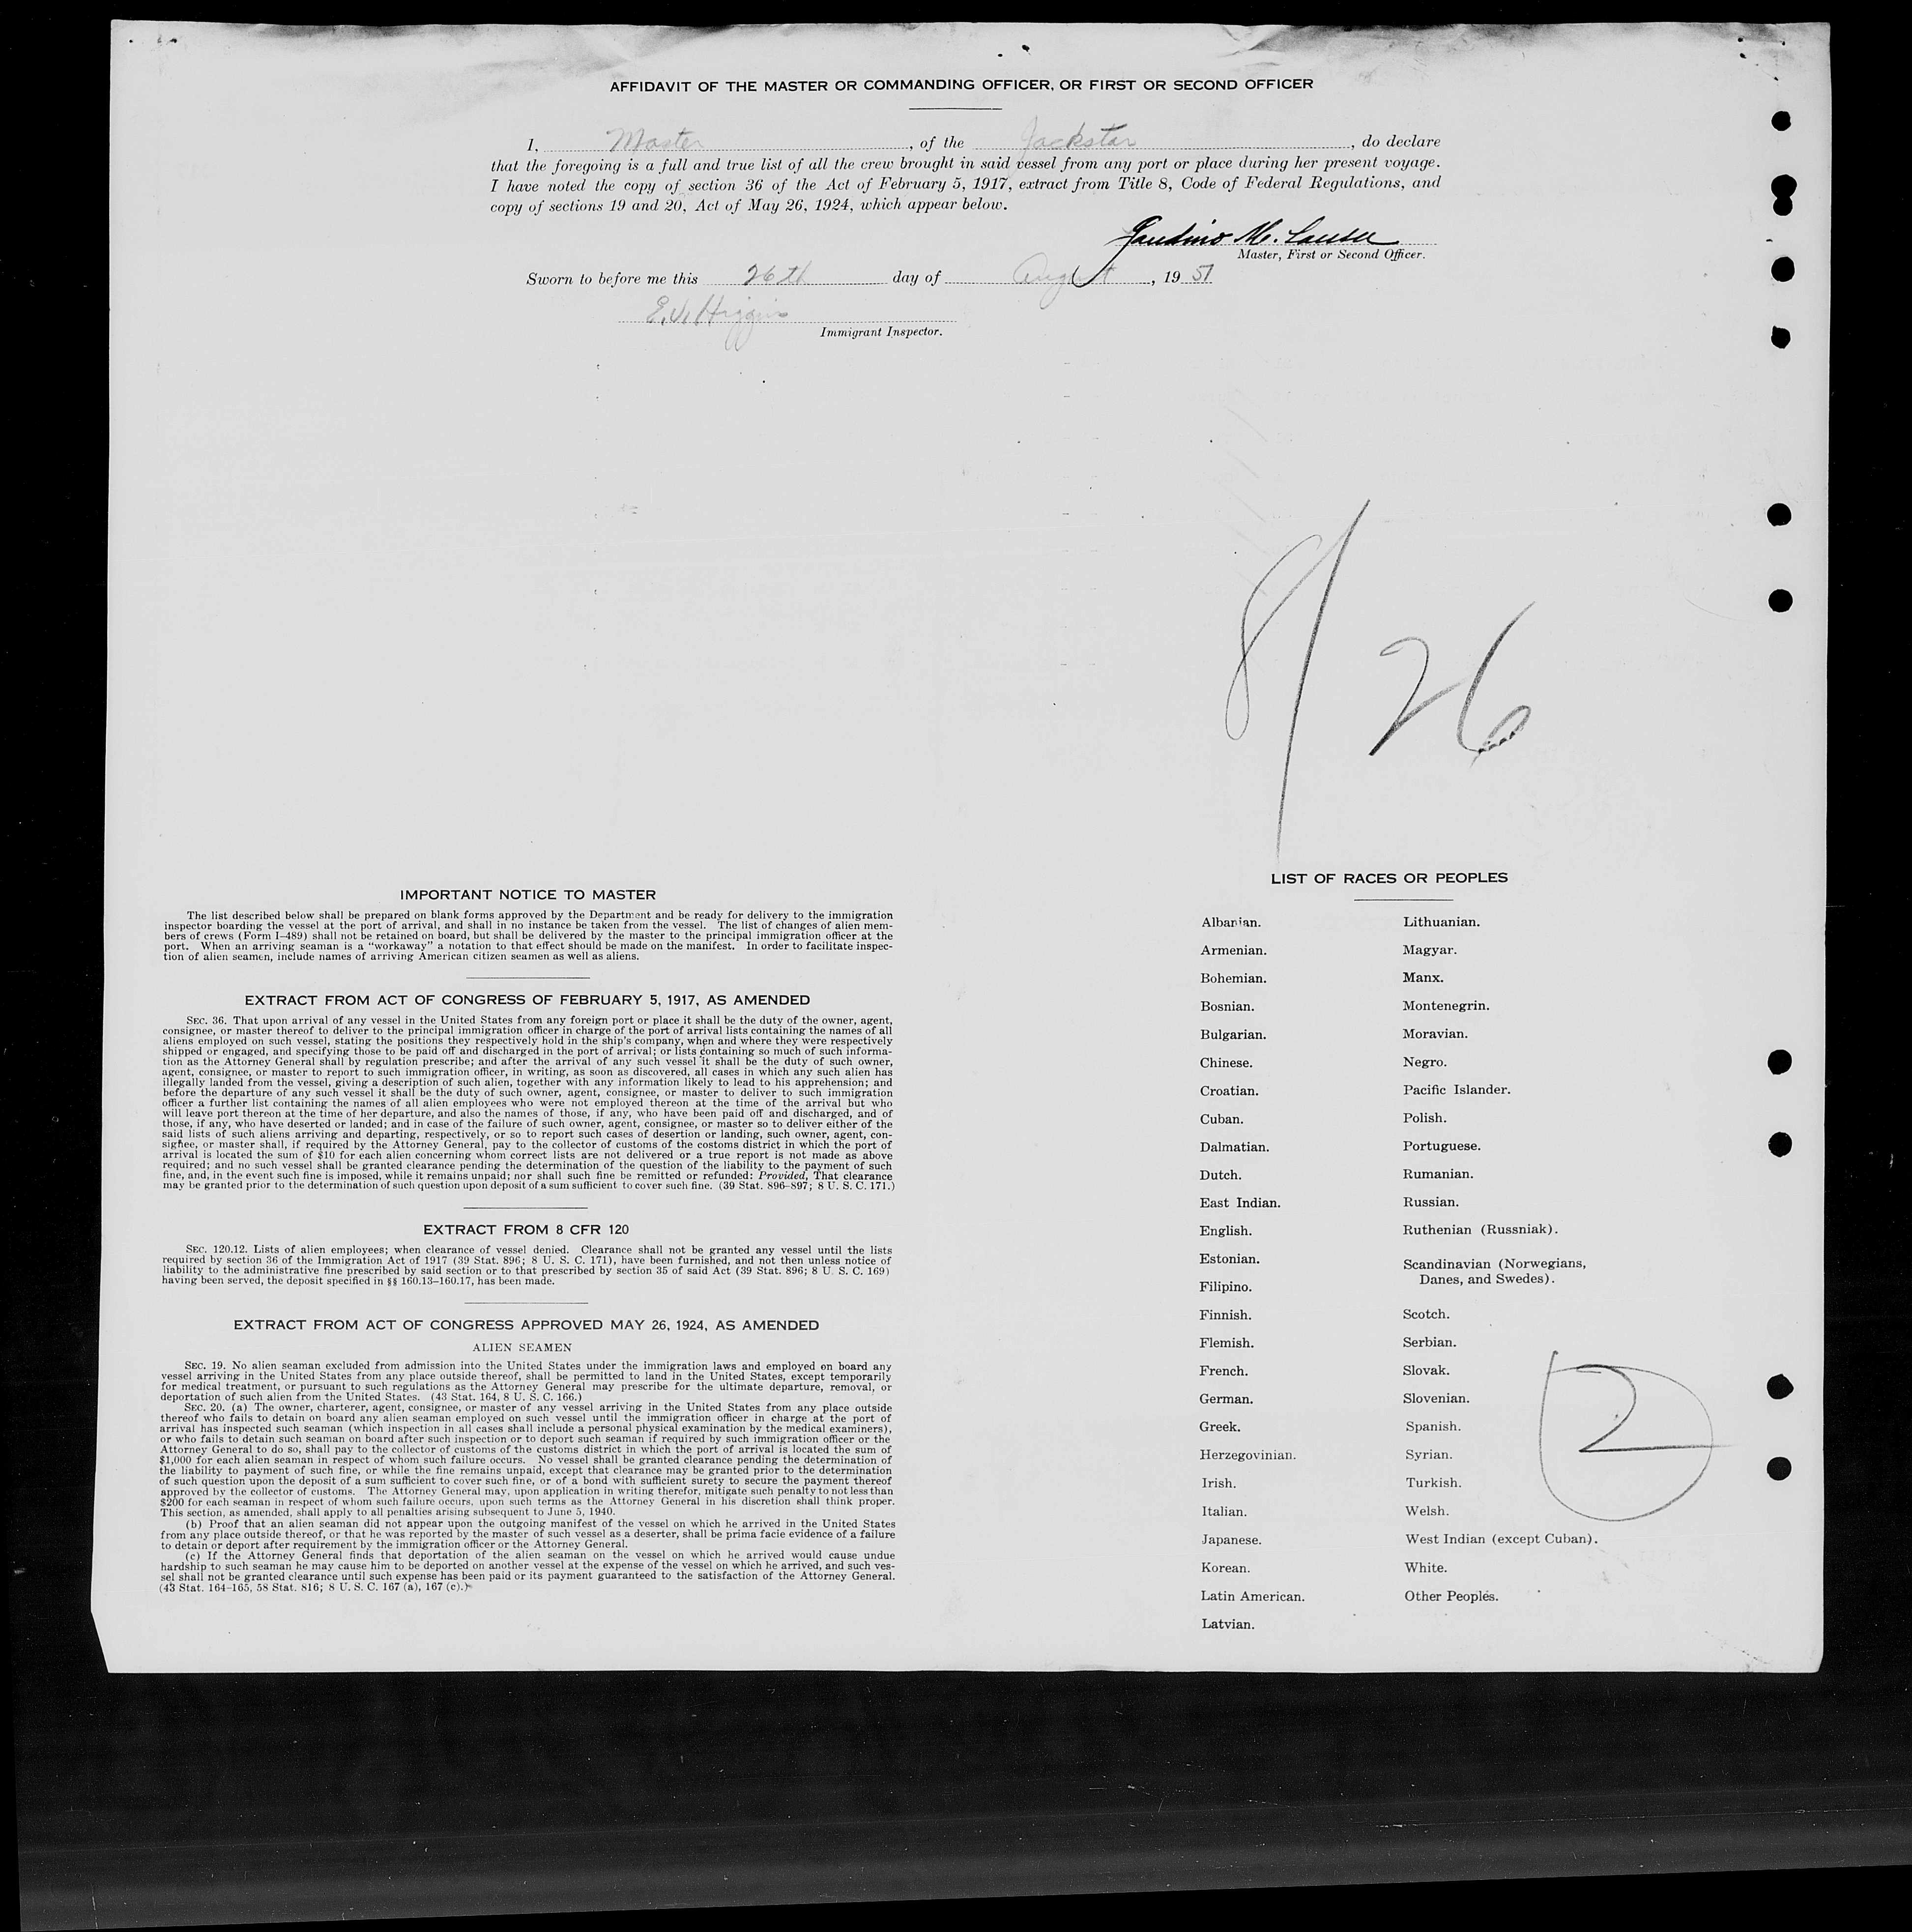 AFFIDAVIT OF THE MASTER OR COMMANDING OFFICER, OR FIRST OR SECOND OFFICER
I, Master, of the Jackstar, do declare
that the foregoing is a full and true list of all the crew brought in said vessel from any port or place during her present voyage.
I have noted the copy of section 36 of the Act of February 5, 1917, extract from Title 8, Code of Federal Regulations, and
copy of sections 19 and 20, Act of May 26, 1924, which appear below.
M.
Master, First or Second Officer.
Sworn to before me this 26th day of August, 1951
E. J. Higgins
Immigrant Inspector.
8/26
IMPORTANT NOTICE TO MASTER
The list described below shall be prepared on blank forms approved by the Department and be ready for delivery to the immigration
inspector boarding the vessel at the port of arrival, and shall in no instance be taken from the vessel. The list of changes of alien mem-
bers of crews (Form I-489) shall not be retained on board, but shall be delivered by the master to the principal immigration officer at the
port. When an arriving seaman is a "workaway" a notation to that effect should be made on the manifest. In order to facilitate inspec-
tion of alien seamen, include names of arriving American citizen seamen as well as aliens.
EXTRACT FROM ACT OF CONGRESS OF FEBRUARY 5, 1917, AS AMENDED
SEC. 36. That upon arrival of any vessel in the United States from any foreign port or place it shall be the duty of the owner, agent,
consignee, or master thereof to deliver to the principal immigration officer in charge of the port of arrival lists containing the names of all
aliens employed on such vessel, stating the positions they respectively hold in the ship's company, when and where they were respectively
shipped or engaged, and specifying those to be paid off and discharged in the port of arrival; or lists containing so much of such informa-
tion as the Attorney General shall by regulation prescribe; and after the arrival of any such vessel it shall be the duty of such owner,
agent, consignee, or master to report to such immigration officer, in writing, as soon as discovered, all cases in which any such alien has
illegally landed from the vessel, giving a description of such alien, together with any information likely to lead to his apprehension; and
before the departure of any such vessel it shall be the duty of such owner, agent, consignee, or master to deliver to such immigration
officer a further list containing the names of all alien employees who were not employed thereon at the time of the arrival but who
will leave port thereon at the time of her departure, and also the names of those, if any, who have been paid off and discharged, and of
those, if any, who have deserted or landed; and in case of the failure of such owner, agent, consignee, or master so to deliver either of the
said lists of such aliens arriving and departing, respectively, or so to report such cases of desertion or landing, such owner, agent, con-
signee, or master shall, if required by the Attorney General, pay to the collector of customs of the costoms district in which the port of
arrival is located the sum of $10 for each alien concerning whom correct lists are not delivered or a true report is not made as above
required; and no such vessel shall be granted clearance pending the determination of the question of the liability to the payment of such
fine, and, in the event such fine is imposed, while it remains unpaid; nor shall such fine be remitted or refunded: Provided, That clearance
may be granted prior to the determination of such question upon deposit of a sum sufficient to cover such fine. (39 Stat. 896-897; 8 U. S. C. 171.)
EXTRACT FROM 8 CFR 120
SEC. 120.12. Lists of alien employees; when clearance of vessel denied. Clearance shall not be granted any vessel until the lists
required by section 36 of the Immigration Act of 1917 (39 Stat. 896; 8 U. S. C. 171), have been furnished, and not then unless notice of
liability to the administrative fine prescribed by said section or to that prescribed by section 35 of said Act (39 Stat. 896; 8 U. S. C. 169)
having been served, the deposit specified in §§ 160.13-160.17, has been made.
EXTRACT FROM ACT OF CONGRESS APPROVED MAY 26, 1924, AS AMENDED
ALIEN SEAMEN
SEC. 19. No alien seaman excluded from admission into the United States under the immigration laws and employed on board any
vessel arriving in the United States from any place outside thereof, shall be permitted to land in the United States, except temporarily
for medical treatment, or pursuant to such regulations as the Attorney General may prescribe for the ultimate departure, removal, or
deportation of such alien from the United States. (43 Stat. 164, 8 U. S. C. 166.)
SEC. 20. (a) The owner, charterer, agent, consignee, or master of any vessel arriving in the United States from any place outside
thereof who fails to detain on board any alien seaman employed on such vessel until the immigration officer in charge at the port of
arrival has inspected such seaman (which inspection in all cases shall include a personal physical examination by the medical examiners),
or who fails to detain such seaman on board after such inspection or to deport such seaman if required by such immigration officer or the
Attorney General to do so, shall pay to the collector of customs of the customs district in which the port of arrival is located the sum of
$1,000 for each alien seaman in respect of whom such failure occurs. No vessel shall be granted clearance pending the determination of
the liability to payment of such fine, or while the fine remains unpaid, except that clearance may be granted prior to the determination
of such question upon the deposit of a sum sufficient to cover such fine, or of a bond with sufficient surety to secure the payment thereof
approved by the collector of customs. The Attorney General may, upon application in writing therefor, mitigate such penalty to not less than
$200 for each seaman in respect of whom such failure occurs, upon such terms as the Attorney General in his discretion shall think proper.
This section, as amended, shall apply to all penalties arising subsequent to June 5, 1940.
(b) Proof that an alien seaman did not appear upon the outgoing manifest of the vessel on which he arrived in the United States
from any place outside thereof, or that he was reported by the master of such vessel as a deserter, shall be prima facie evidence of a failure
to detain or deport after requirement by the immigration officer or the Attorney General.
(c) If the Attorney General finds that deportation of the alien seaman on the vessel on which he arrived would cause undue
hardship to such seaman he may cause him to be deported on another vessel at the expense of the vessel on which he arrived, and such ves-
sel shall not be granted clearance until such expense has been paid or its payment guaranteed to the satisfaction of the Attorney General.
(43 Stat. 164-165, 58 Stat. 816; 8 U. S. C. 167 (a), 167 (c).)
LIST OF RACES OR PEOPLES
Albanian.
Armenian.
Bohemian.
Bosnian.
Bulgarian.
Chinese.
Croatian.
Cuban.
Dalmatian.
Dutch.
East Indian.
English.
Estonian.
Filipino.
Finnish.
Flemish.
French.
German.
Greek.
Herzegovinian.
Irish.
Italian.
Japanese.
Korean.
Latin American.
Latvian.
Lithuanian.
Magyar.
Manx.
Montenegrin.
Moravian.
Negro.
Pacific Islander.
Polish.
Portuguese.
Rumanian.
Russian.
Ruthenian (Russniak).
Scandinavian (Norwegians,
Danes, and Swedes).
Scotch.
Serbian.
Slovak.
Slovenian.
Spanish.
Syrian.
Turkish.
Welsh.
West Indian (except Cuban).
White.
Other Peoples.
2